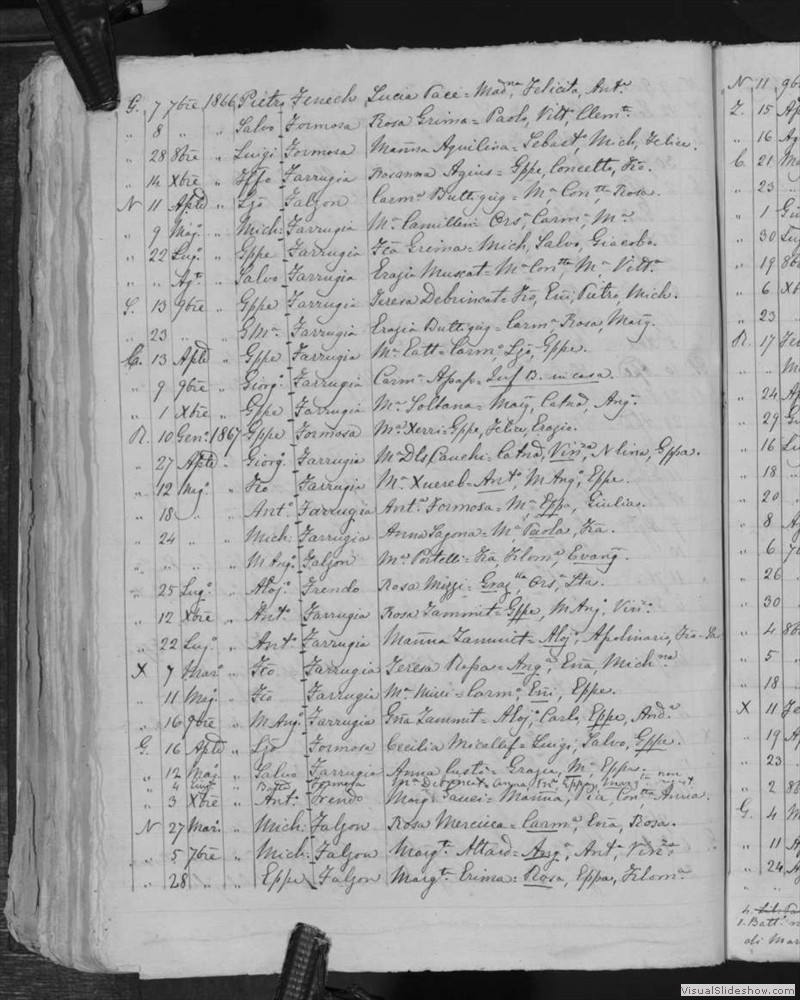 G. 7 7bre 1866 Pietro Fenech Lucia Pace = Madna, Felicita, Anta
" 8 " " Salvo Formosa Rosa Grima = Paolo, Vitta, Clemte
" 28 8bre " Luigi Formosa Manna Aquilina = Sebast, Mich, Felice.
" 14 Xbre " Farrugia Rosanna Agius = Gppe, Concetta, Fco.
N 11 Aple " Ljo Falzon Carma Buttigieg = Ma Contta, Rosa.
" 9 Mag. " Mich: Farrugia Ma Camilleri Orsa Carma, Ma
" 22 Lugo " Gppe Farrugia Fca Grima = Mich, Salvo, Giacoba
" " Agto " Salvo Farrugia Erazia Muscat = Ma Contta, Ma Vitta
S. 13 9bre " Gppe Farrugia Teresa Debrincat = Fco, Eni, Pietro, Mich.
" 23 " " GMa. Farrugia Erazia Buttigieg = Carma, Rosa, Marg.
G. 13 Aple " Gppe Farrugia Ma Catt = Carmo Ljo, Gppe.
" 9 9bre " Giorgo Farrugia Carma Apap = Inf B. in casa.
" 1 Xbre " Gppe Farrugia Ma Soltana = Marg, Catna, Ang.
R. 10 Geno 1867 Gppe Formosa Ma Xerri = Gppa, Felice, Erazia.
" 27 Aple " Giorgo Farrugia Ma Dls Cauchi = Catna, Vinza, N lina, Gppa.
" 12 Mago " Fco Farrugia Ma Xuereb = Anto, M Ango, Gppe.
" 18 " " Anto Farrugia Anta Formosa = Ma Gppa, Giulia.
" 24 " " Mich: Farrugia Anna Sagona = Ma Paola, Fca.
" " " " M Ango Falzon Ma Portelli = Fca, Filoma, Evang.
" 25 Lugo " Alojo Frendo Rosa Mizzi = Grazlla, Orsa, Lta.
" 12 Xbre " Anto Farrugia Rosa Zammit = Gppe, M Ango, Vinzo
" 22 Lugo " Anto Farrugia Manna Zammit = Alojo, Apolinario,
X 7 Maro " Fco Farrugia Teresa Refa = Anga, Ena, Michna
" 11 Mago " Fco Farrugia Ma Mizzi = Carmo Eni, Gppe.
" 16 9bre " M Ango Farrugia Gna Zammit = Alojo, Carlo, Gppe, Anda
G. 16 Aple " Ljo Formosa Cecilia Micallef = Luigi, Salvo, Gppe.
" 12 Mago " Salvo Farrugia Anna Custo = Grazia, Ma, Gppe.
" 4 Lugo " Batta Formosa
" 3 Xbre " Anto Frendo Marg. = Manna, Fca, Contta Anna.
N 27 Maro " Mich: Falzon Rosa Mercieca = Carma, Ena, Rosa.
" 5 7bre " Mich: Falzon Margta Attard = Anga, Anta, Vinza
" 28 " " Gppe Falzon Margta Grima = Rosa, Gppa, Filoma
N 11 9b
Z. 15 Ap
" 16 Ag
C. 21 Ma
" 23 "
" 1 Giu
" 30 Lug
" 19 8b
" 6 Xb
" 23 "
R. 17 Fe
" " Ma
" 24 Ap
" 29 G
" 16 Lu
" 18 "
" 20 "
" 8 Ag
" 6 7b
" 26 "
" 30 "
" 4 8b
" 5 "
" 18 "
X 11 Fe
" 19 Ap
" 23 "
" 2 8b
G. 4 M
" 11 A
" 24 A
1. Batta
di Mar
VisualSlideshow.com